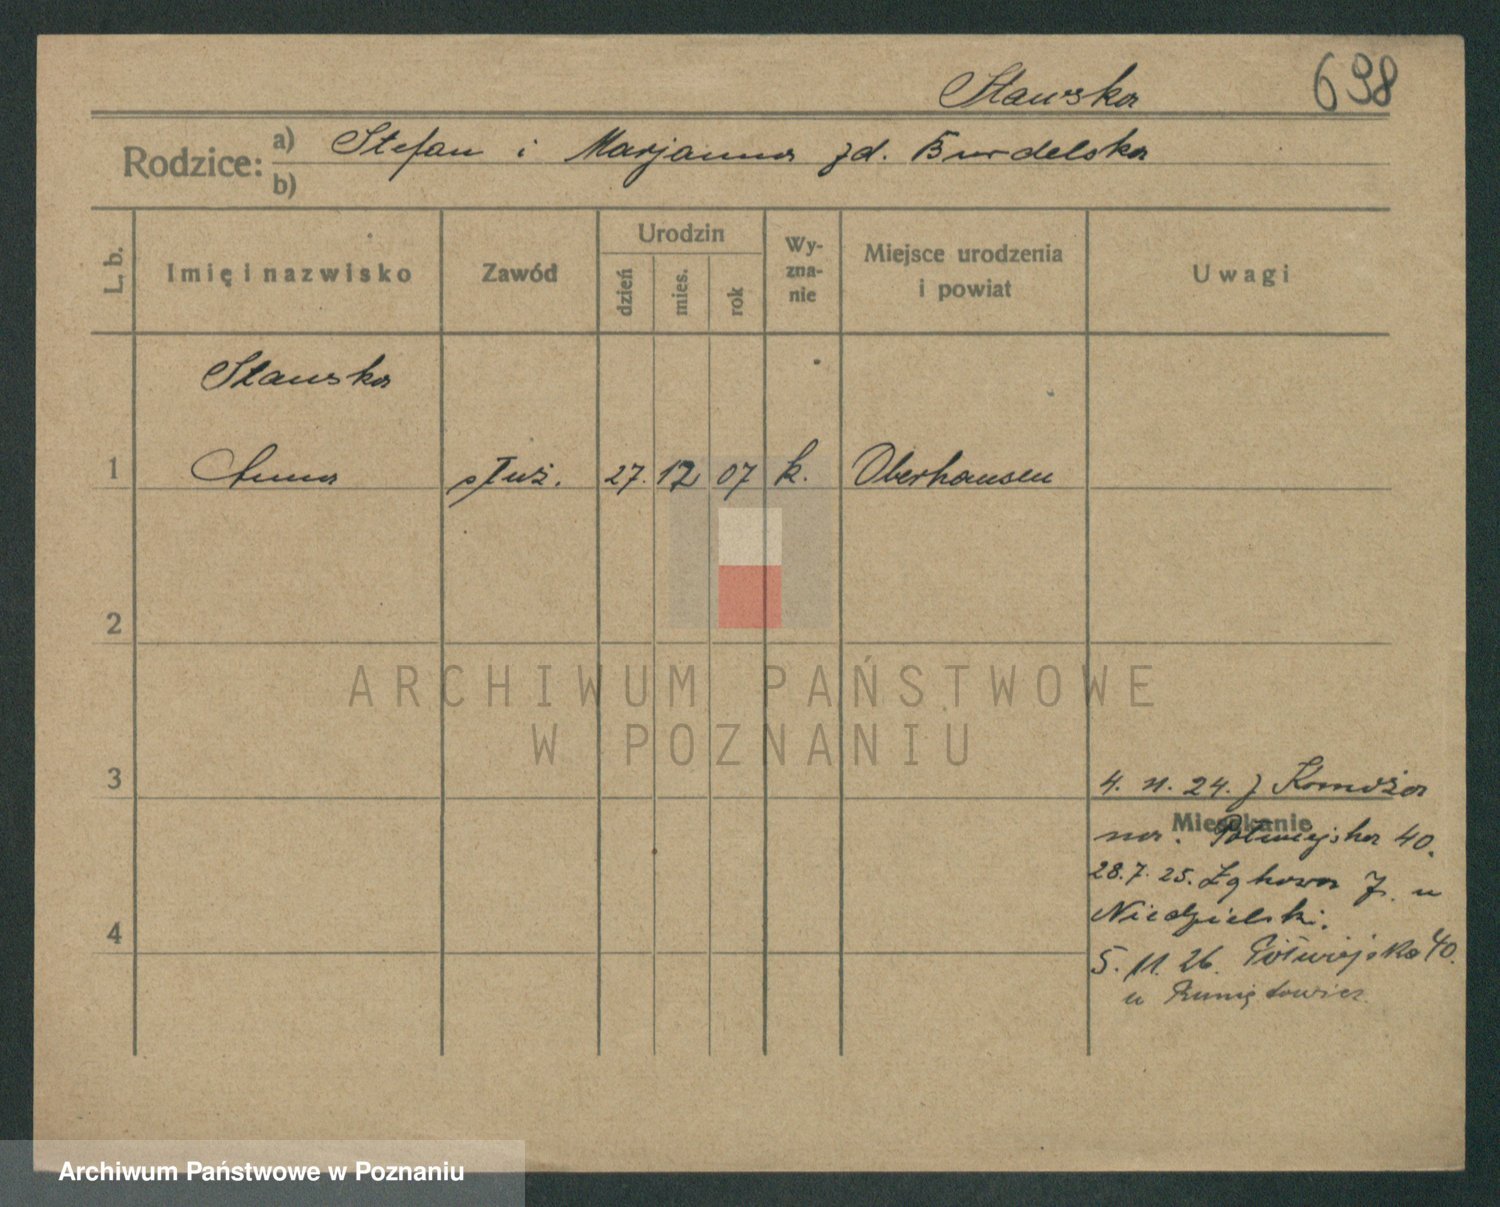 Stawska 698
Rodzice: a) Stefan i Marjanna zd. Burdelska
b)
L. b. Imię i nazwisko Zawód Urodzin dzień mies. rok Wyznanie Miejsce urodzenia i powiat Uwagi
Stawska
1 Anna służ. 27. 12 07 k. Oberhausen
2
ARCHIWUM PAŃSTWOWE
W POZNANIU
3
4. 11. 24. z
Mieszkanie
Półwiejska 40.
28. 7. 25. u
4 Niedzielski.
5. 11. 26. Półwiejska 40.
u
Archiwum Państwowe w Poznaniu